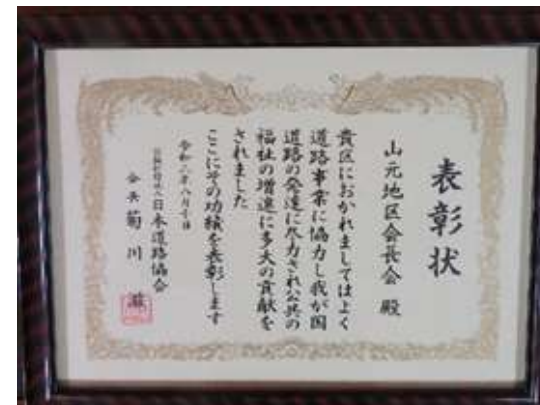 表彰状
山元地区会長会 殿
貴区におかれましてはよく
道路事業に協力し我が国
道路の発達に尽力され公共の
福祉の増進に多大の貢献を
されました
ここにその功績を表彰します
令和二年八月十日
公益社団法人日本道路協会
会長 菊川 滋